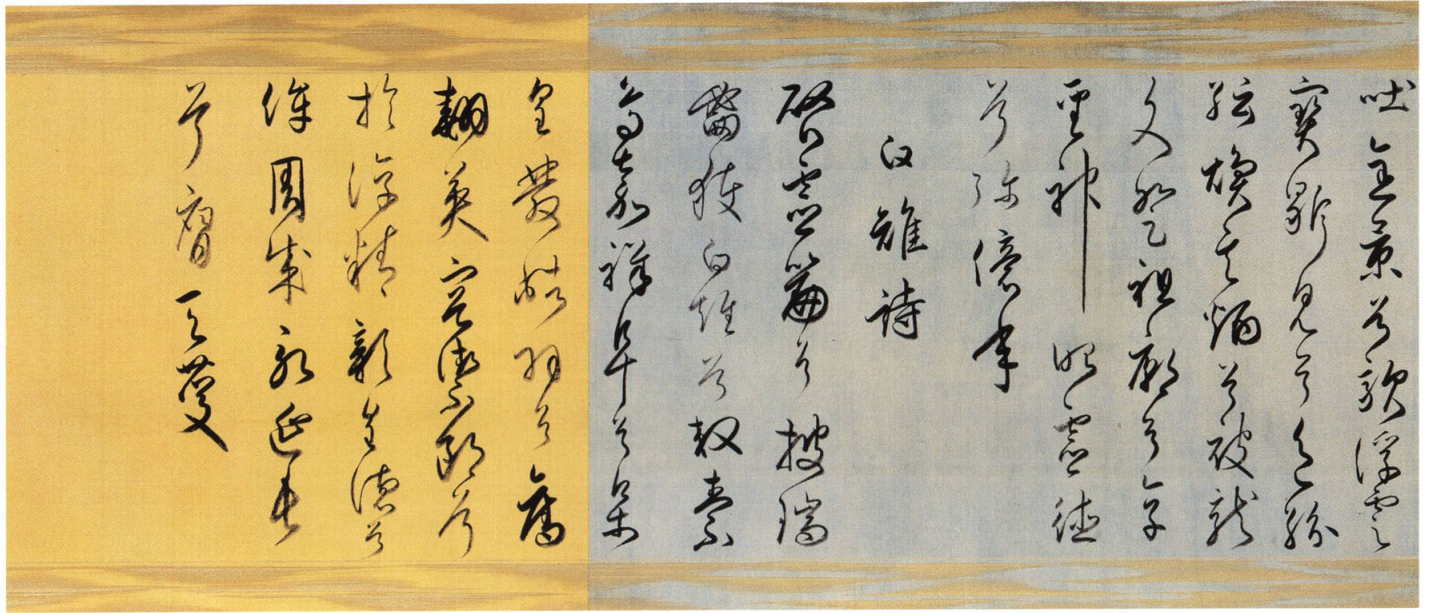 吐金景兮歊浮雲
寶鼎見兮色紛
縕煥其炳兮被龍
文登祖廟兮享
聖神昭靈德
兮彌億年
白雉詩
啓靈篇兮披瑞
圖獲白雉兮效素
烏嘉祥阜兮集
皇發皓羽兮奮
翹英容潔朗兮
於淳精彰皇德兮
侔周成永延長
兮膺天慶